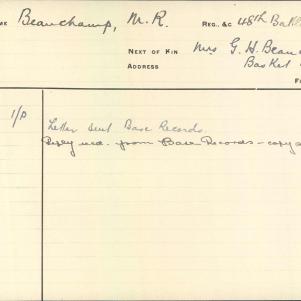 ME Beauchamp, M. R. REG., &C 48th Batt
NEXT OF KIN Mrs G. H. Beauc
ADDRESS Basket
1/P
Letter sent Base Records.
Reply recd. from Base Records - copy